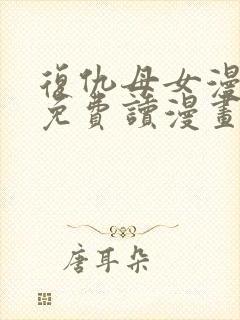 復仇母女漫
免費讀漫畫
唐耳朵